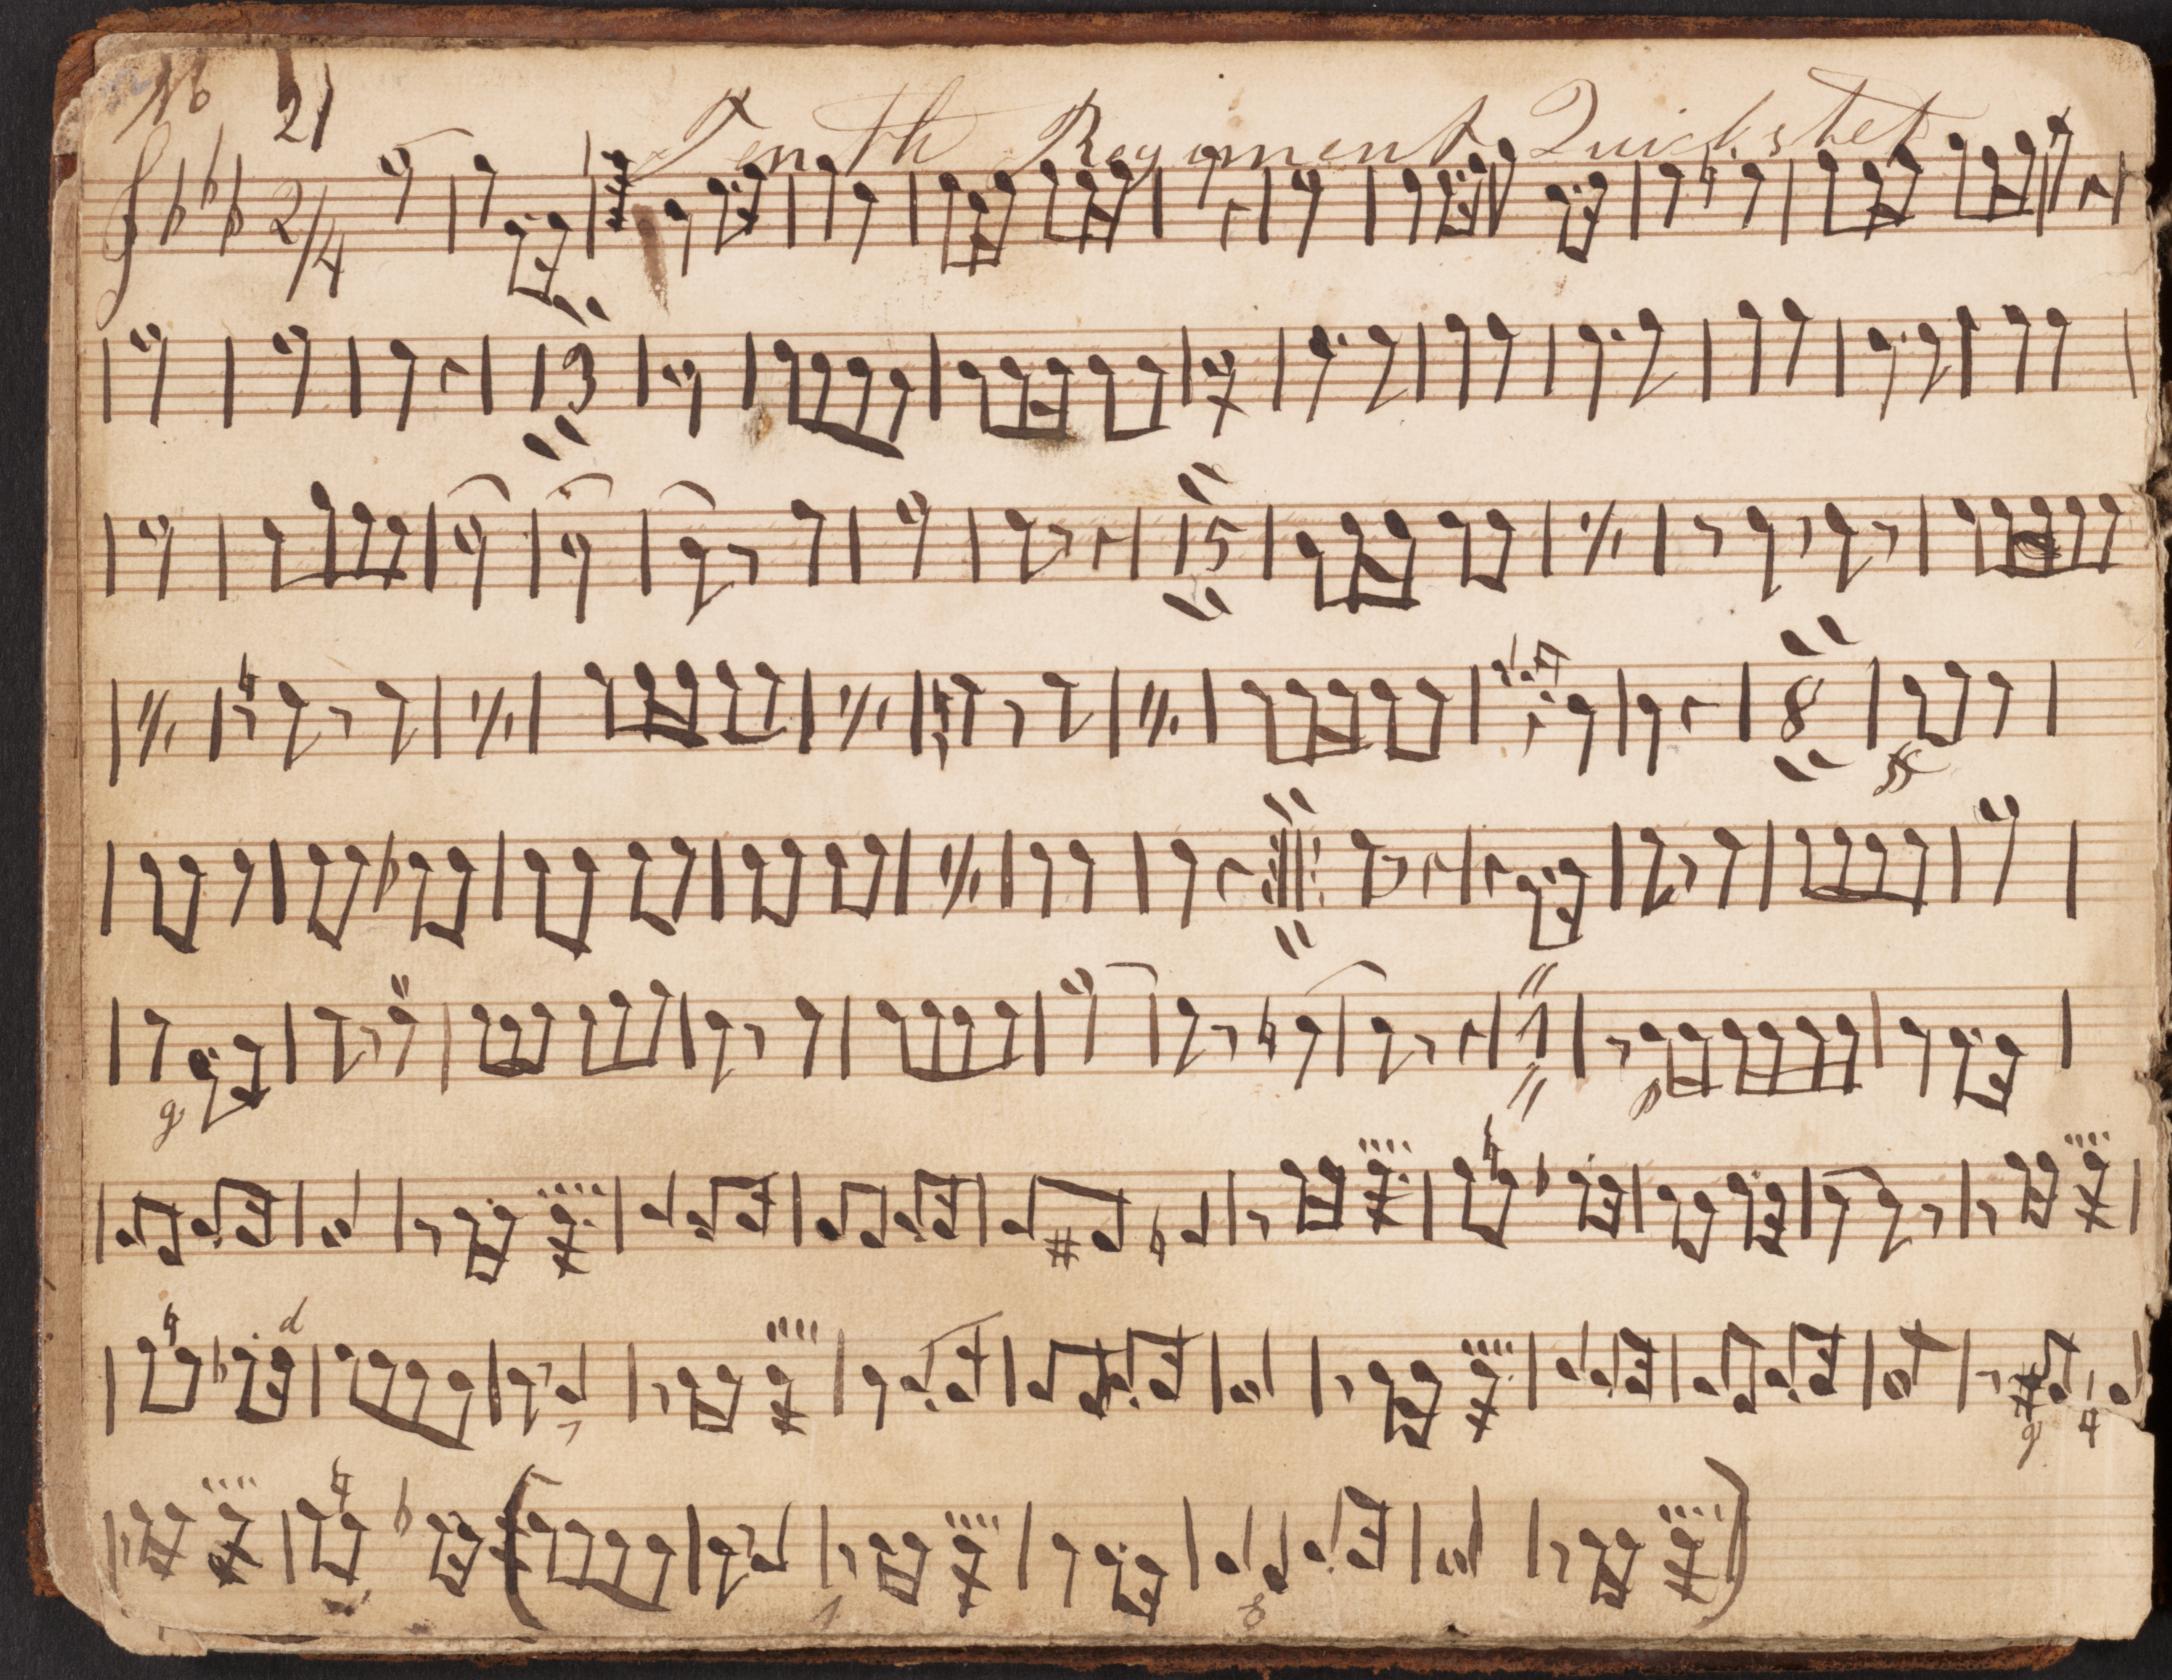 No 21
Tenth Regiment Quickstep
2/4
3
5
8
1
g
p
d
g
8